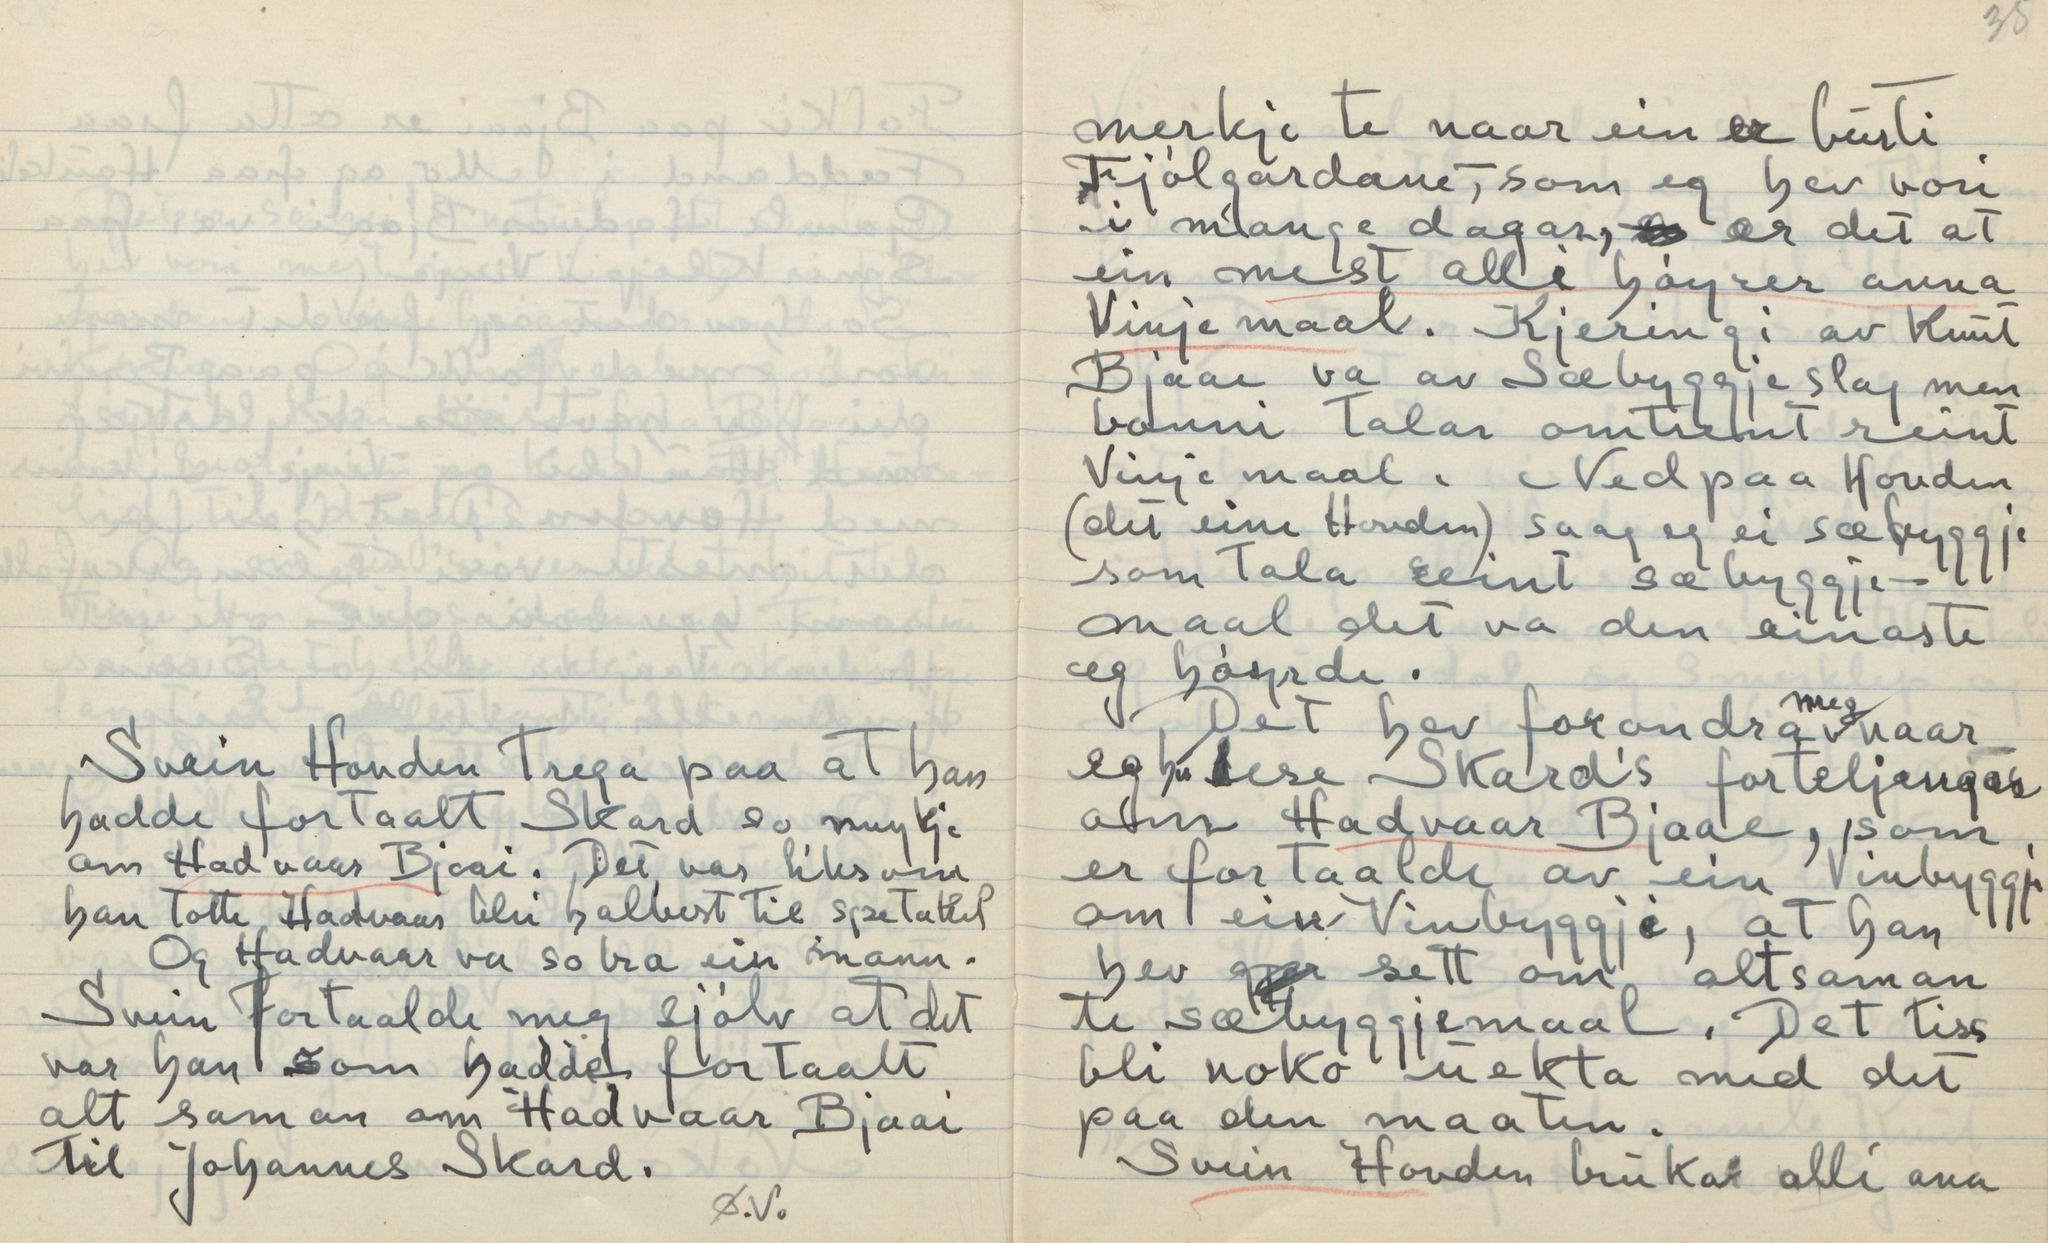 Svein Hovden trega paa at han
hadde fortaalt Skard so mykje
om Hadvaar Bjaai. Det var liksom
han totte Hadvaar blei halvest til spetakkel
Og Hadvaar va so bra ein mann.
Svein fortaalde meg sjølv at det
var han som hadde fortaalt
alt saman om Hadvaar Bjaai
til Johannes Skard.
Ø.V.
35
merkje te naar ein er bústi
Fjølgardane, som eg hev vori
i mange dagar, er det at
ein mest alli høyrer anna
Vinjemaal. Kjeringi av Knut
Bjaae va av Sæbyggjeslag men
bonni talar omtrent reint
Vinjemaal. Ned paa Hovden
(det eine Hovden) saag eg ei sæbyggje
som tala reint sæbyggje-
maal det va den einaste
eg høyrde.
Det hev forondra meg naar
eg lese Skard's forteljingar
om Hadvaar Bjaae, som
er fortaalde av ein Vinbyggje
om ein Vinbyggje, at han
hev sett om altsaman
te sæbyggjemaal. Det tiss
bli noko uekta med det
paa den maaten.
Svein Hovden brukar alli ana